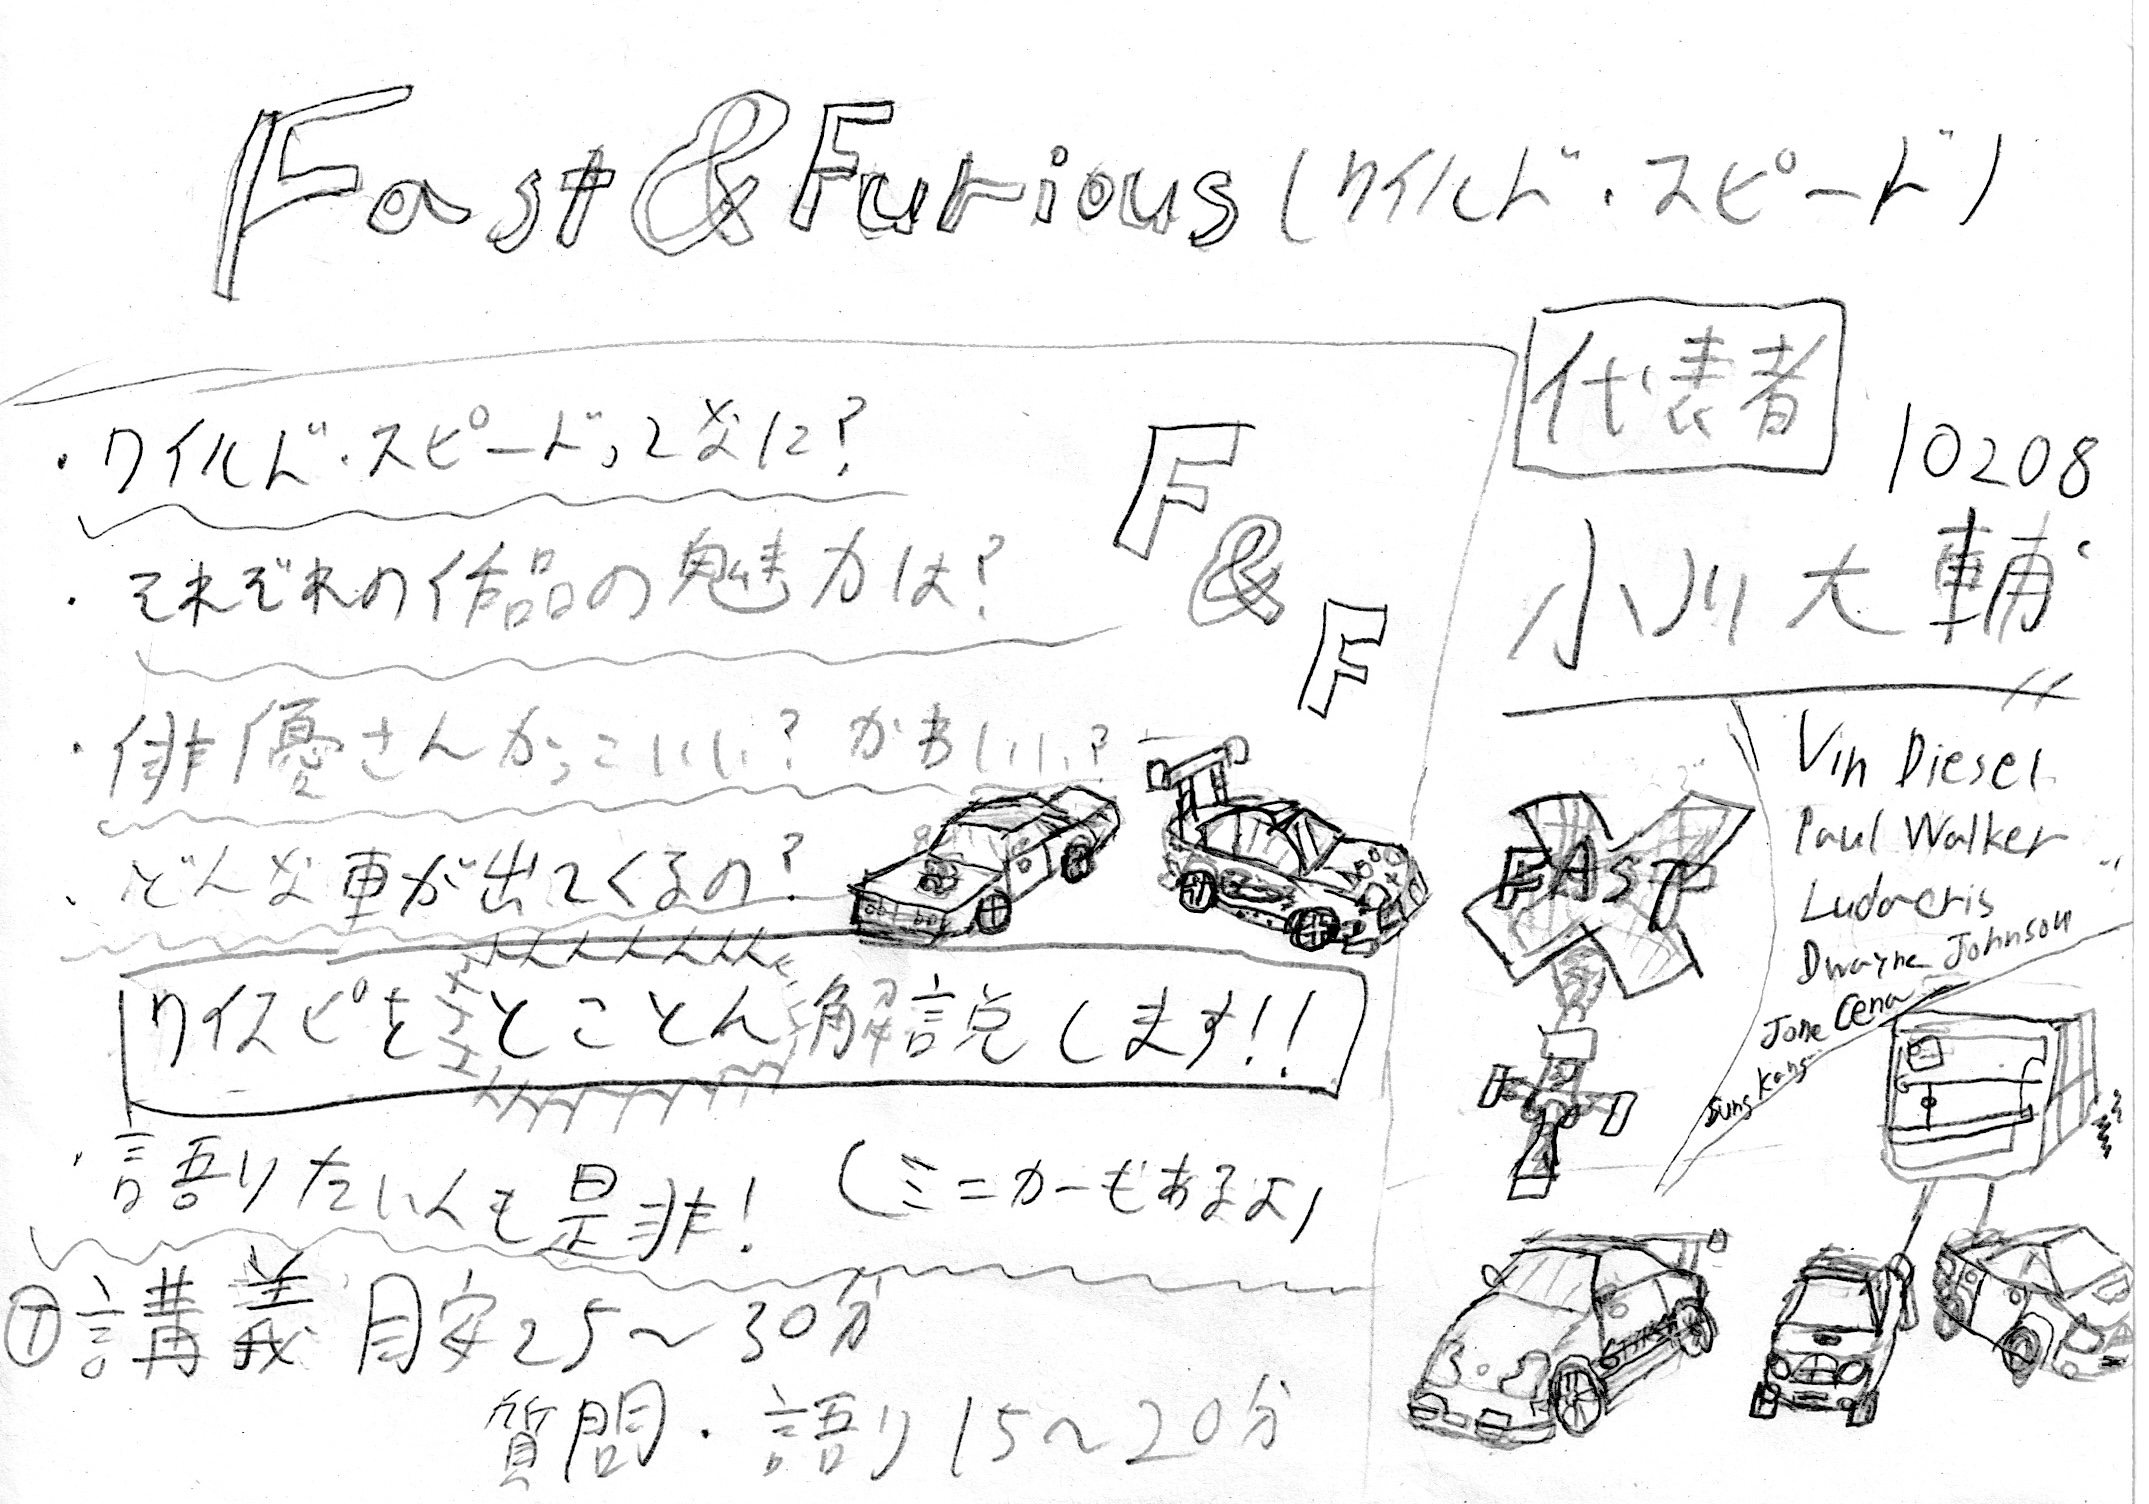 Fast & Furious (ワイルド・スピード)
・ワイルド・スピードってなに?
・それぞれの作品の魅力は?
・俳優さんかっこいい? かわいい?
・どんな車が出てくるの?
F
&
F
ワイスピをとことん解説します!!
・語りたい人も是非! (ミニカーもあるよ)
T 講義 目安25〜30分
質問・語り 15〜20分
代表者
10208
小川大輔
FAST
Vin Diesel
Paul Walker
Ludacris
Dwayne Johnson
Jone Cena
Sung Kang